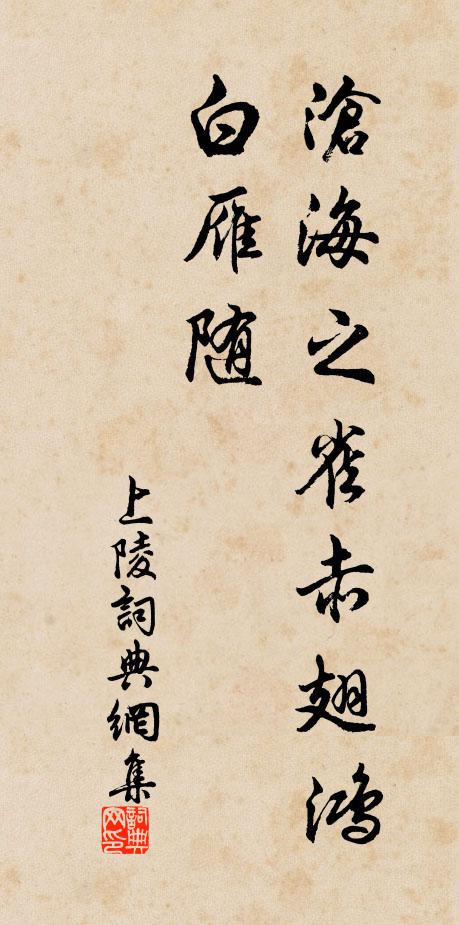 滄海之雀赤翅鴻
白雁随
上陵詞典網集
詞典
网印